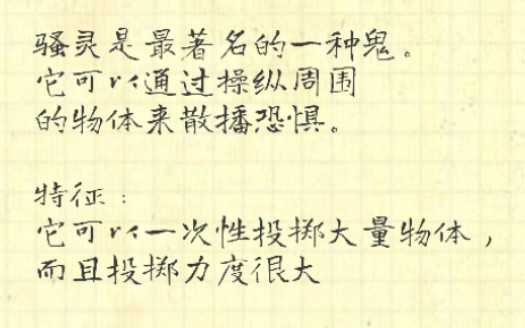 骚灵是最著名的一种鬼。
它可以通过操纵周围
的物体来散播恐惧。
特征:
它可以一次性投掷大量物体,
而且投掷力度很大